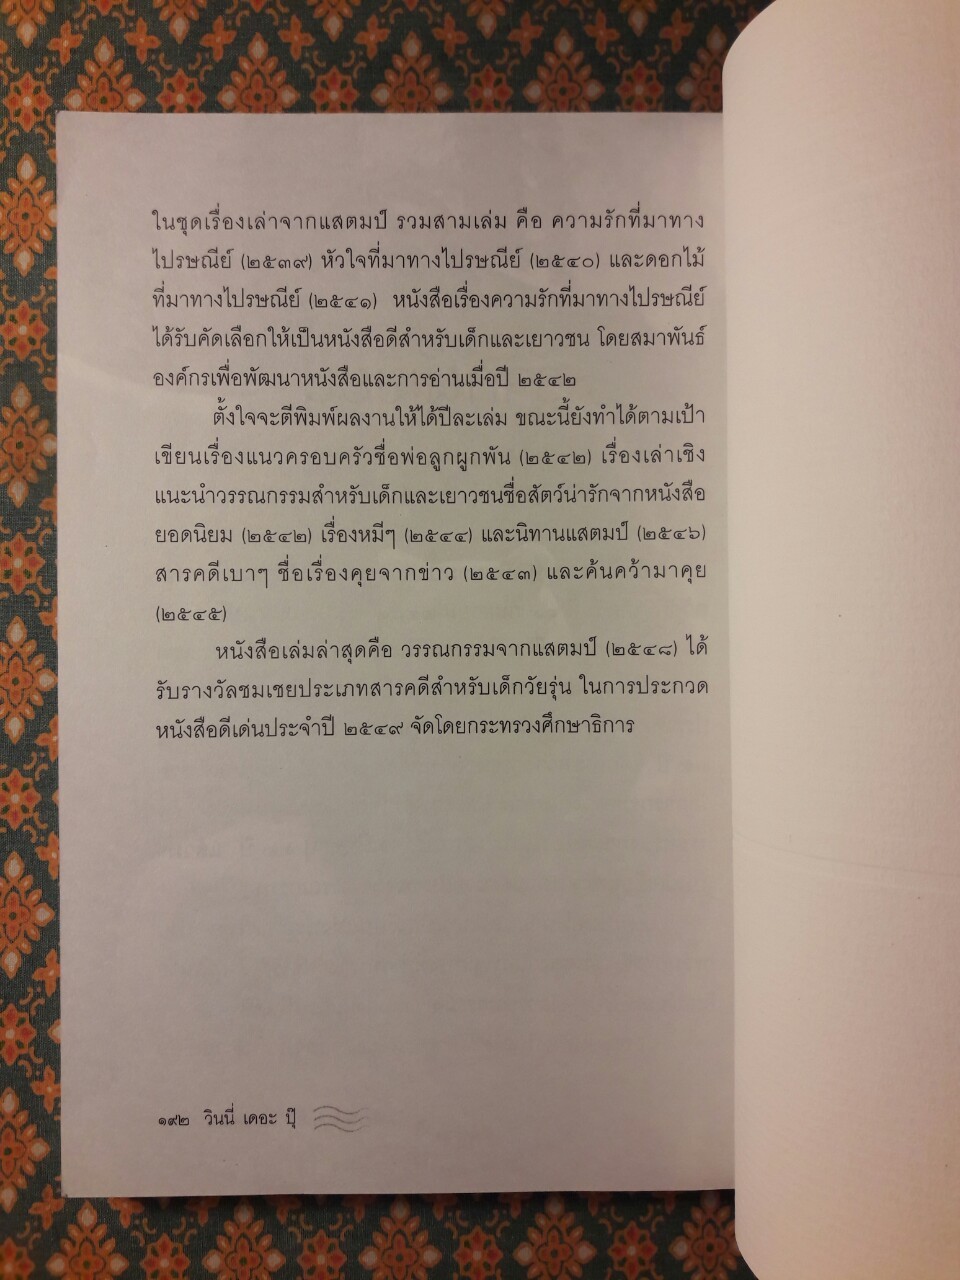 ในชุดเรื่องเล่าจากแสตมป์ รวมสามเล่ม คือ ความรักที่มาทาง
ไปรษณีย์ (๒๕๓๙) หัวใจที่มาทางไปรษณีย์ (๒๕๔๐) และดอกไม้
ที่มาทางไปรษณีย์ (๒๕๔๑) หนังสือเรื่องความรักที่มาทางไปรษณีย์
ได้รับคัดเลือกให้เป็นหนังสือดีสำหรับเด็กและเยาวชน โดยสมาพันธ์
องค์กรเพื่อพัฒนาหนังสือและการอ่านเมื่อปี ๒๕๔๒
ตั้งใจจะตีพิมพ์ผลงานให้ได้ปีละเล่ม ขณะนี้ยังทำได้ตามเป้า
เขียนเรื่องแนวครอบครัวชื่อพ่อลูกผูกพัน (๒๕๔๒) เรื่องเล่าเชิง
แนะนำวรรณกรรมสำหรับเด็กและเยาวชนชื่อสัตว์น่ารักจากหนังสือ
ยอดนิยม (๒๕๔๒) เรื่องหมีๆ (๒๕๔๔) และนิทานแสตมป์ (๒๕๔๖)
สารคดีเบาๆ ชื่อเรื่องคุยจากข่าว (๒๕๔๓) และค้นคว้ามาคุย
(๒๕๔๕)
หนังสือเล่มล่าสุดคือ วรรณกรรมจากแสตมป์ (๒๕๔๘) ได้
รับรางวัลชมเชยประเภทสารคดีสำหรับเด็กวัยรุ่น ในการประกวด
หนังสือดีเด่นประจำปี ๒๕๔๙ จัดโดยกระทรวงศึกษาธิการ
๑๙๒ วินนี่ เดอะ ปุ๊